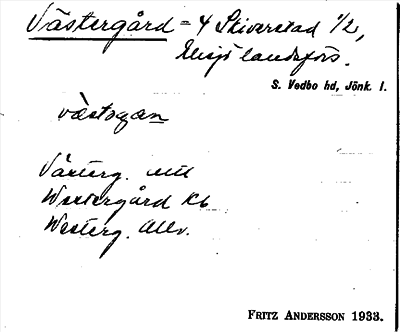 Västergård = 4 Skiverstad 1/2,
landsförs.
S. Vedbo hd, Jönk. l.
västsgan
Västerg. ritl
Westergård Kb
Westerg. Allv.
FRITZ ANDERSSON 1933.